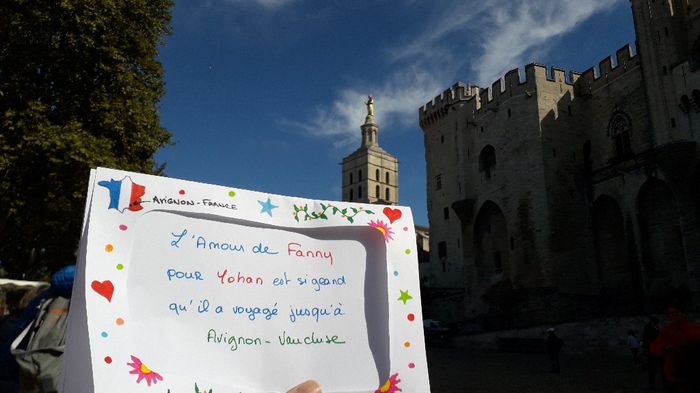 AVIGNON-FRANCE
L'Amour de Fanny
pour Yohan est si grand
qu'il a voyagé jusqu'à
Avignon-Vaucluse